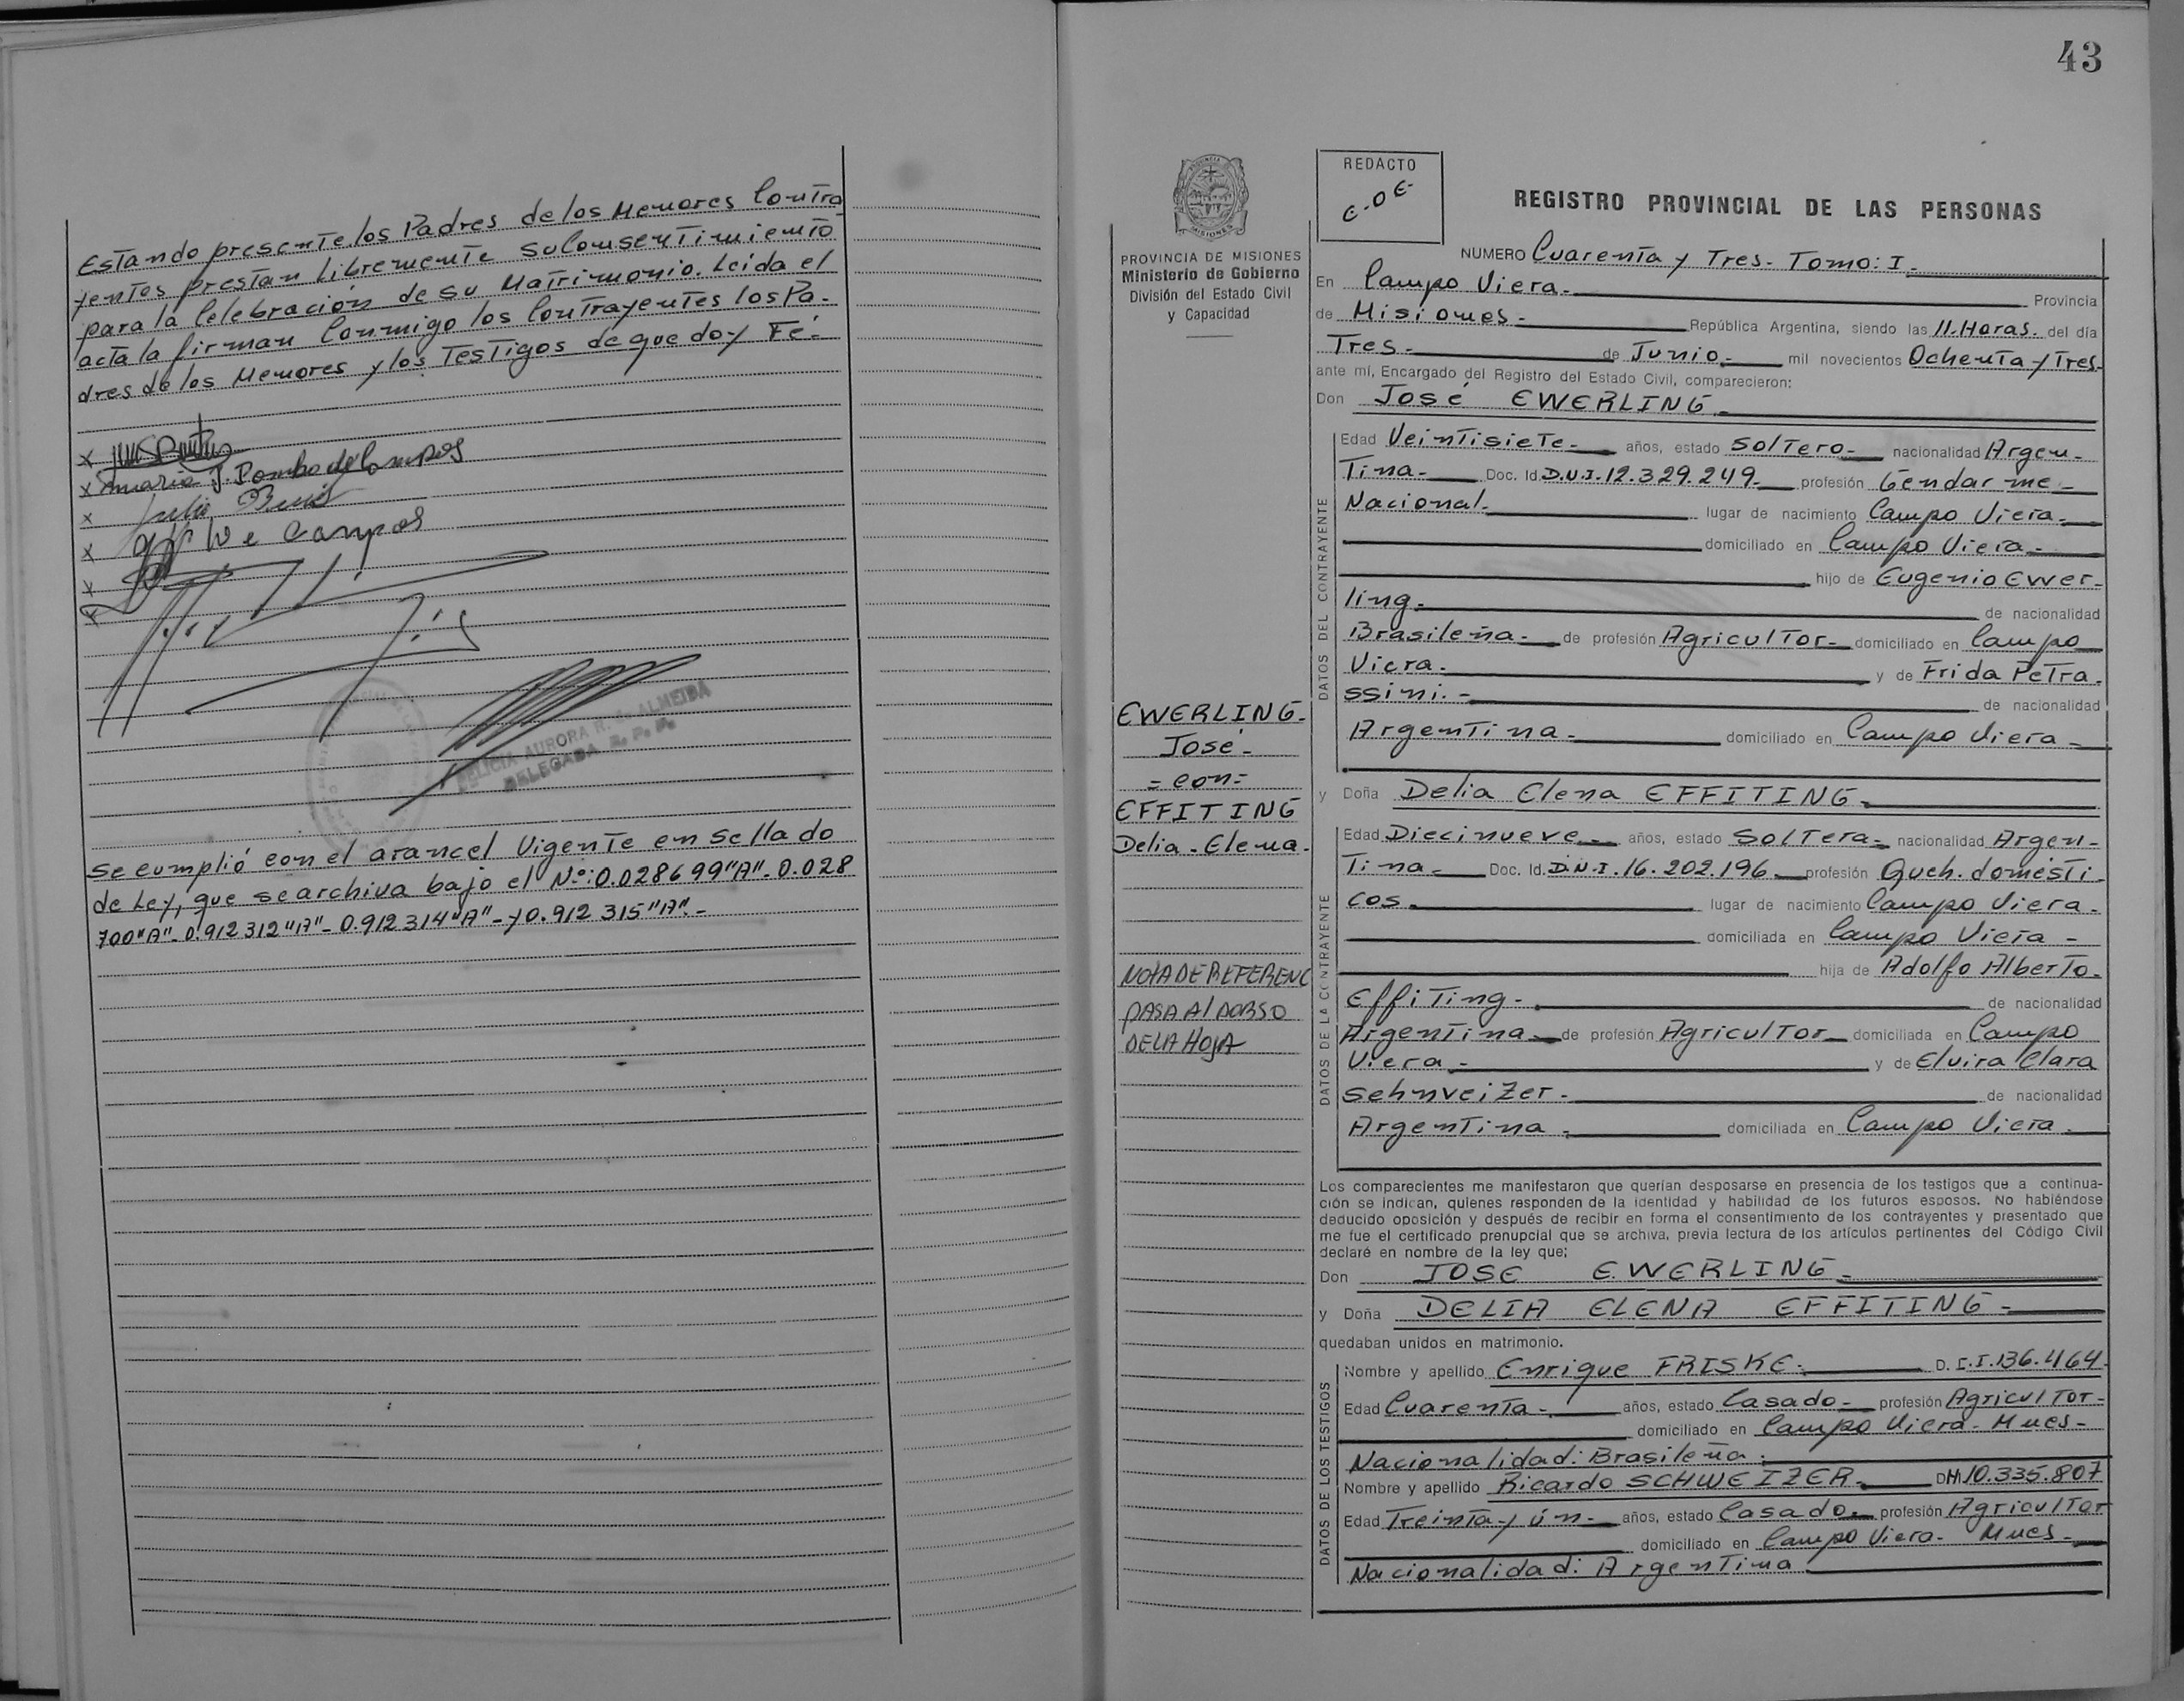 Estando presente los Padres de los Menores Contra
yentes prestan Libremente su Consentimiento
para la Celebración de su Matrimonio. Leida el
acta la firman Conmigo los Contrayentes los Pa-
dres de los Menores y los Testigos de que doy Fé.-
x
x Maria J. Pombo de Campos
x Julio
x De Campos
x
x
DELICIA AURORA R. de ALMEIDA
DELEGADA R. P. P.
Se cumplió con el arancel Vigente en Sellado
de Ley, que se archiva bajo el Nº:0.028699"A"-0.028
700"A"-0.912312"A"-0.912314"A"-y 0.912315"A".-
43
PROVINCIA DE MISIONES
Ministerio de Gobierno
División del Estado Civil
y Capacidad
EWERLING-
José-
=con=
EFFITING
Delia-Elena-
NOTA DE REFERENC
PASA Al DORSO
DE LA HOJA
REDACTO
REGISTRO PROVINCIAL DE LAS PERSONAS
NUMERO Cuarenta y Tres- Tomo: I-
En Campo Viera- Provincia
de Misiones- República Argentina, siendo las 11.Horas. del día
Tres- de Junio- mil novecientos Ochenta y Tres-
ante mí, Encargado del Registro del Estado Civil, comparecieron:
Don José EWERLING-
DATOS DEL CONTRAYENTE
Edad Veintisiete- años, estado Soltero- nacionalidad Argen-
Tina- Doc. Id. D.N.I.12.329.249- profesión Gendarme-
Nacional. lugar de nacimiento Campo Viera-
domiciliado en Campo Viera-
hijo de Eugenio Ewer-
ling- de nacionalidad
Brasileña- de profesión Agricultor- domiciliado en Campo
Viera- y de Frida Petra-
ssini.- de nacionalidad
Argentina- domiciliado en Campo Viera-
y Doña Delia Elena EFFITING-
DATOS DE LA CONTRAYENTE
Edad Diecinueve- años, estado Soltera- nacionalidad Argen-
Tina- Doc. Id. D.N.I.16.202.196- profesión Queh. domesti-
cos- lugar de nacimiento Campo Viera-
domiciliada en Campo Viera-
hija de Adolfo Alberto-
Effiting- de nacionalidad
Argentina- de profesión Agricultor- domiciliada en Campo
Viera- y de Elvira Clara
Schnveizer- de nacionalidad
Argentina- domiciliada en Campo Viera-
Los comparecientes me manifestaron que querían desposarse en presencia de los testigos que a continua-
ción se indican, quienes responden de la identidad y habilidad de los futuros esposos. No habiéndose
deducido oposición y después de recibir en forma el consentimiento de los contrayentes y presentado que
me fue el certificado prenupcial que se archiva, previa lectura de los artículos pertinentes del Código Civil
declaré en nombre de la ley que;
Don JOSE EWERLING-
y Doña DELIA ELENA EFFITING-
quedaban unidos en matrimonio.
DATOS DE LOS TESTIGOS
Nombre y apellido Enrique FRISKE- D. C.I.136.464-
Edad Cuarenta- años, estado Casado- profesión Agricultor-
domiciliado en Campo Viera- Mnes-
Nacionalidad: Brasileña-
Nombre y apellido Ricardo SCHWEIZER- DNI 10.335.807
Edad Treinta y ún- años, estado Casado- profesión Agricultor
domiciliado en Campo Viera- Mnes-
Nacionalidad: Argentina